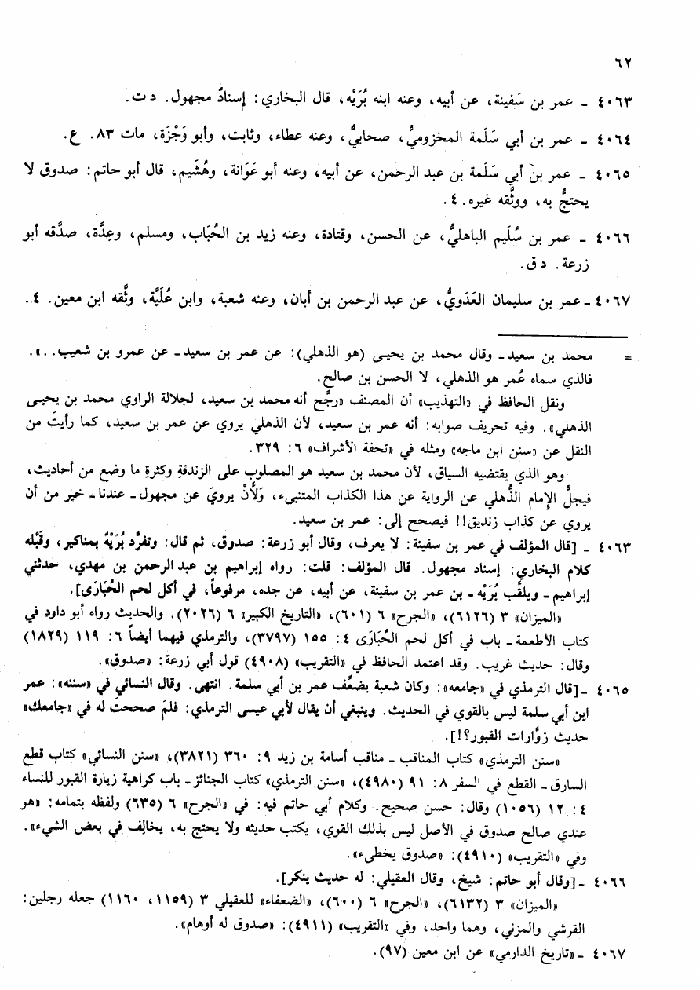 ٦٢
٤٠٦٣ - عمر بن سَفينة، عن أبيه، وعنه ابنه بُرَيْه، قال البخاري: إسنادٌ مجهول. د ت.
٤٠٦٤ - عمر بن أبي سَلَمة المخزوميُّ، صحابيٌّ، وعنه عطاء، وثابت، وأبو وَجْزَة، مات ٨٣. ع.
٤٠٦٥ - عمر بن أبي سَلَمة بن عبد الرحمن، عن أبيه، وعنه أبو عَوَانة، وهُشَيم، قال أبو حاتم: صدوق لا
يحتجُّ به، ووثَّقه غيره. ٤.
٤٠٦٦ - عمر بن سُلَيم الباهليُّ، عن الحسن، وقتادة، وعنه زيد بن الحُبَاب، ومسلم، وعِدَّة، صدَّقه أبو
زرعة. د ق.
٤٠٦٧ - عمر بن سليمان العَدَويُّ، عن عبد الرحمن بن أبان، وعنه شعبة، وابن عُلَيَّة، وثَّقه ابن معين. ٤.
= محمد بن سعيد - وقال محمد بن يحيى (هو الذهلي): عن عمر بن سعيد - عن عمرو بن شعيب..».
فالذي سماه عُمر هو الذهلي، لا الحسن بن صالح.
ونقل الحافظ في «التهذيب» أن المصنف «رجَّح أنه محمد بن سعيد، لجلالة الراوي محمد بن يحيى
الذهلي». وفيه تحريف صوابه: أنه عمر بن سعيد، لأن الذهلي يروي عن عمر بن سعيد، كما رأيتَ من
النقل عن «سنن ابن ماجه» ومثله في «تحفة الأشراف» ٦: ٣٢٩.
وهو الذي يقتضيه السياق، لأن محمد بن سعيد هو المصلوب على الزندقة وكثرة ما وضع من أحاديث،
فيجلُّ الإمام الذُّهلي عن الرواية عن هذا الكذاب المتنبىء، وَلأَنْ يرويَ عن مجهول - عندنا - خير من أن
يروي عن كذاب زنديق!! فيصحح إلى: عمر بن سعيد.
٤٠٦٣ - [قال المؤلف في عمر بن سفينة: لا يعرف، وقال أبو زرعة: صدوق، ثم قال: وتفرَّد بُرَيْهُ بمناكير، وقَبْلَه
كلام البخاري: إسناد مجهول. قال المؤلف: قلت: رواه إبراهيم بن عبد الرحمن بن مهدي، حدثني
إبراهيم - ويلقَّب بُرَيْه - بن عمر بن سفينة، عن أبيه، عن جده، مرفوعاً، في أكل لحم الحُبَارَى].
«الميزان» ٣ (٦١٢٦)، «الجرح» ٦ (٦٠١)، «التاريخ الكبير» ٦ (٢٠٢٦). والحديث رواه أبو داود في
كتاب الأطعمة - باب في أكل لحم الحُبَارَى ٤: ١٥٥ (٣٧٩٧)، والترمذي فيهما أيضاً ٦: ١١٩ (١٨٢٩)
وقال: حديث غريب. وقد اعتمد الحافظ في «التقريب» (٤٩٠٨) قول أبي زرعة: «صدوق».
٤٠٦٥ - [قال الترمذي في «جامعه»: وكان شعبة يضعِّف عمر بن أبي سلمة. انتهى. وقال النسائي في «سننه»: عمر
ابن أبي سلمة ليس بالقوي في الحديث. وينبغي أن يقال لأبي عيسى الترمذي: فلمَ صححت له في «جامعك»
حديث زوَّارات القبور؟!].
«سنن الترمذي» كتاب المناقب - مناقب أسامة بن زيد ٩: ٣٦٠ (٣٨٢١)، «سنن النسائي» كتاب قطع
السارق - القطع في السفر ٨: ٩١ (٤٩٨٠)، «سنن الترمذي» كتاب الجنائز - باب كراهية زيارة القبور للنساء
٤: ١٢ (١٠٥٦) وقال: حسن صحيح. وكلام أبي حاتم فيه: في «الجرح» ٦ (٦٣٥) ولفظه بتمامه: «هو
عندي صالح صدوق في الأصل ليس بذلك القوي، يكتب حديثه ولا يحتج به، يخالف في بعض الشيء».
وفي «التقريب» (٤٩١٠): «صدوق يخطىء».
٤٠٦٦ - [وقال أبو حاتم: شيخ، وقال العقيلي: له حديث ينكر].
«الميزان» ٣ (٦١٣٢)، «الجرح» ٦ (٦٠٠)، «الضعفاء» للعقيلي ٣ (١١٥٩، ١١٦٠) جعله رجلين:
القرشي والمزني، وهما واحد، وفي «التقريب» (٤٩١١): «صدوق له أوهام».
٤٠٦٧ - «تاريخ الدارمي» عن ابن معين (٩٧).